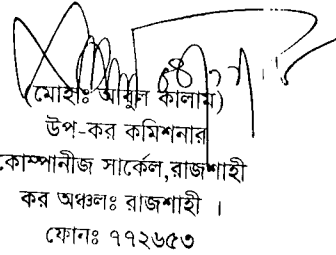 (মোহাঃ আবুল কালাম)
উপ-কর কমিশনার
কোম্পানীজ সার্কেল,রাজশাহী
কর অঞ্চলঃ রাজশাহী ।
ফোনঃ ৭৭২৬৫৩